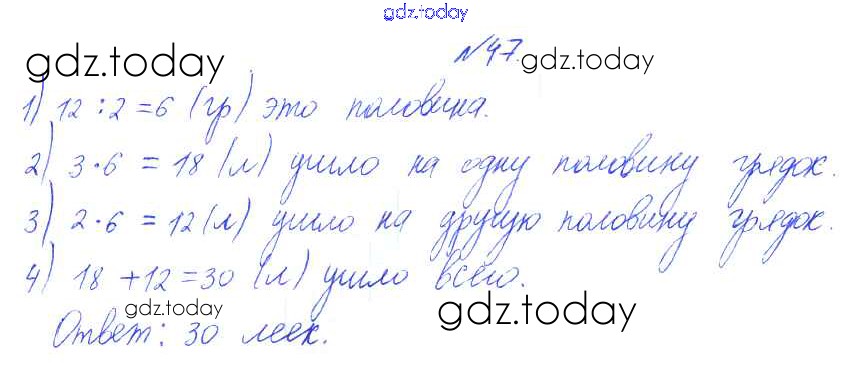 gdz.today
№47.
gdz.today
gdz.today
1) 12 : 2 = 6 (гр) это половина.
2) 3 · 6 = 18 (л) ушло на одну половину грядок.
3) 2 · 6 = 12 (л) ушло на другую половину грядок.
4) 18 + 12 = 30 (л) ушло всего.
gdz.today
gdz.today
Ответ: 30 леек.